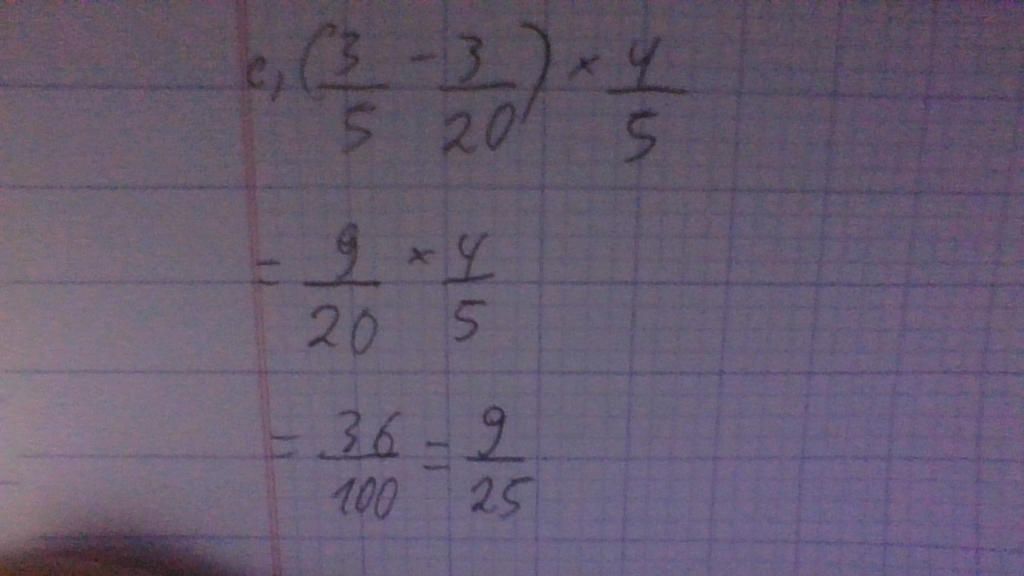 c, (3/5 - 3/20) × 4/5
= 9/20 × 4/5
= 36/100 = 9/25